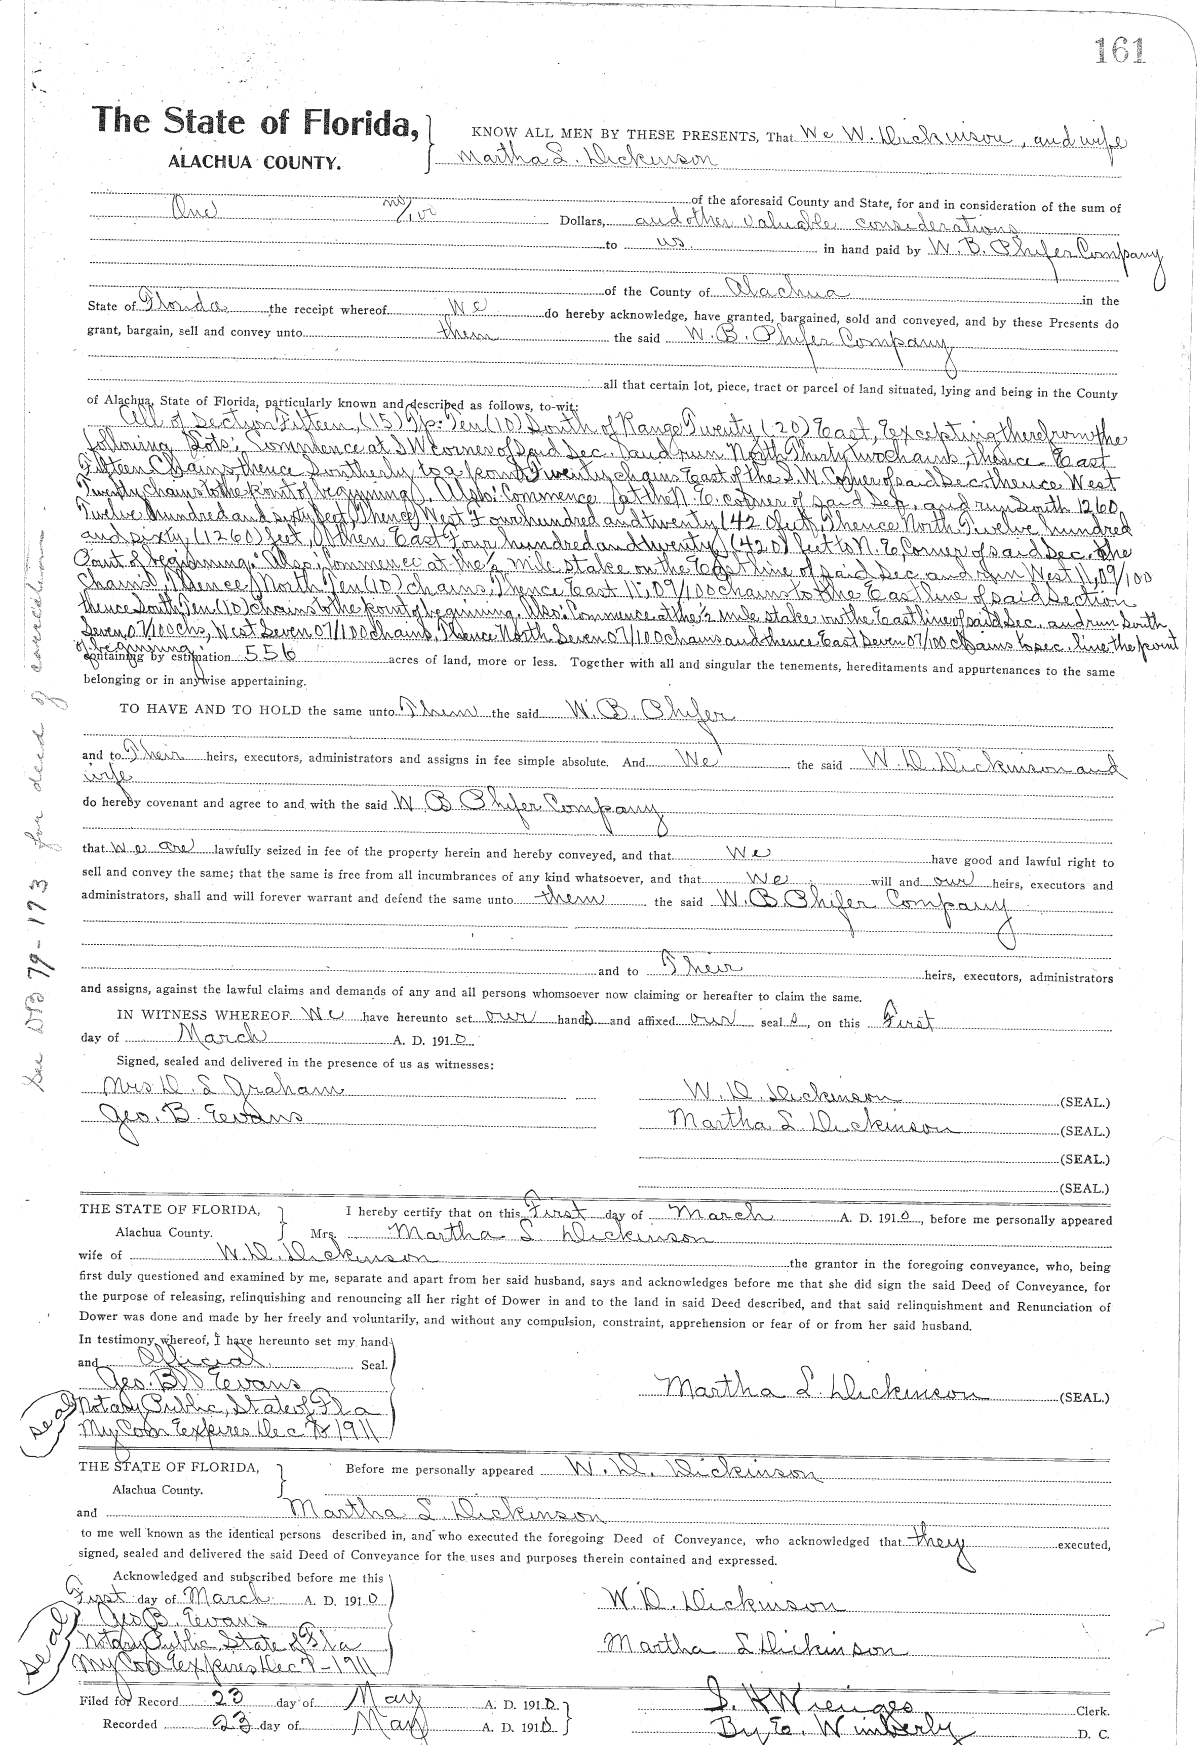 161
The State of Florida,
ALACHUA COUNTY.
KNOW ALL MEN BY THESE PRESENTS, That We W. Dickinson, and wife
Martha L. Dickinson
of the aforesaid County and State, for and in consideration of the sum of
One no/100 Dollars, and other valuable considerations
to us in hand paid by W. B. Phifer Company
of the County of Alachua in the
State of Florida the receipt whereof We do hereby acknowledge, have granted, bargained, sold and conveyed, and by these Presents do
grant, bargain, sell and convey unto them the said W. B. Phifer Company
all that certain lot, piece, tract or parcel of land situated, lying and being in the County
of Alachua, State of Florida, particularly known and described as follows, to-wit:
All of Section Fifteen, (15) Tp. Ten (10) South of Range Twenty (20) East, Excepting therefrom the
following Lots; Commence at S W corner of said Sec. and run North Thirty two chains, thence East
Fifteen Chains, thence Southerly to a point Twenty chains East of the S. W. Corner of said Sec. thence West
Twenty chains to the point of beginning. Also: Commence at the N. E. corner of said Sec, and run South 1260
Twelve hundred and sixty feet, Thence West Four hundred and twenty (420 feet, Thence North Twelve hundred
and sixty, (1260) feet, then East Four hundred and twenty (420) feet to N. E. Corner of said Sec. the
Point of beginning: Also; commence at the ½ mile stake on the East line of said Sec. and run West 11,09/100
chains, Thence North Ten (10) chains, Thence East 11,09/100 chains to the East line of said Section
thence South Ten (10) chains to the point of beginning. Also: Commence at the ½ mile stake on the East line of said Sec. and run South
Seven, 07/100 chs, West Seven 07/100 chains, Thence North Seven 07/100 chains and thence East Seven 07/100 chains to sec. line the point
of beginning
containing by estimation 556 acres of land, more or less. Together with all and singular the tenements, hereditaments and appurtenances to the same
belonging or in anywise appertaining.
TO HAVE AND TO HOLD the same unto Them the said W. B. Phifer
and to Their heirs, executors, administrators and assigns in fee simple absolute. And We the said W. D. Dickinson and
wife
do hereby covenant and agree to and with the said W B Phifer Company
that we are lawfully seized in fee of the property herein and hereby conveyed, and that We have good and lawful right to
sell and convey the same; that the same is free from all incumbrances of any kind whatsoever, and that We will and our heirs, executors and
administrators, shall and will forever warrant and defend the same unto them the said W. B. Phifer Company
and to Their heirs, executors, administrators
and assigns, against the lawful claims and demands of any and all persons whomsoever now claiming or hereafter to claim the same.
IN WITNESS WHEREOF We have hereunto set our hands and affixed our seal s, on this First
day of March A. D. 1910
Signed, sealed and delivered in the presence of us as witnesses:
Mrs D. L Graham W. D. Dickinson (SEAL.)
Geo. B. Evans Martha L Dickinson (SEAL.)
(SEAL.)
(SEAL.)
See DB 79-173 for deed of correction.
THE STATE OF FLORIDA,
Alachua County.
I hereby certify that on this First day of March A. D. 1910, before me personally appeared
Mrs. Martha L Dickinson
wife of W. D. Dickinson the grantor in the foregoing conveyance, who, being
first duly questioned and examined by me, separate and apart from her said husband, says and acknowledges before me that she did sign the said Deed of Conveyance, for
the purpose of releasing, relinquishing and renouncing all her right of Dower in and to the land in said Deed described, and that said relinquishment and Renunciation of
Dower was done and made by her freely and voluntarily, and without any compulsion, constraint, apprehension or fear of or from her said husband.
In testimony whereof, I have hereunto set my hand
and Official Seal.
Geo. B. Evans
Martha L. Dickinson (SEAL.)
seal
Notary Public, State of Fla
My Com Expires Dec 1911
THE STATE OF FLORIDA,
Alachua County.
Before me personally appeared W. D. Dickinson
and Martha L Dickinson
to me well known as the identical persons described in, and who executed the foregoing Deed of Conveyance, who acknowledged that they executed,
signed, sealed and delivered the said Deed of Conveyance for the uses and purposes therein contained and expressed.
Acknowledged and subscribed before me this
First day of March A. D. 1910
W. D. Dickinson
Geo B. Evans
seal
Notary Public, State of Fla
Martha L Dickinson
My Com Expires Dec 8-1911
Filed for Record 23 day of May A. D. 1910
S. H Wienges Clerk.
Recorded 23 day of May A. D. 1910
By E. Wimberly D. C.